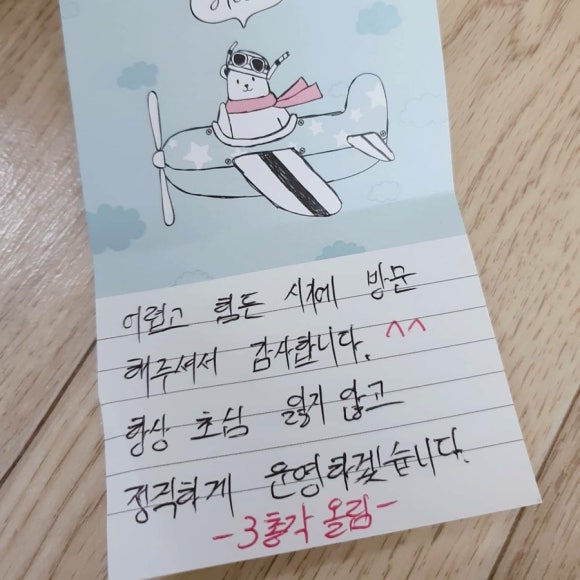 어렵고 힘든 시기에 방문
해주셔서 감사합니다. ^^
항상 초심 잃지 않고
정직하게 운영하겠습니다.
-3총각 올림-